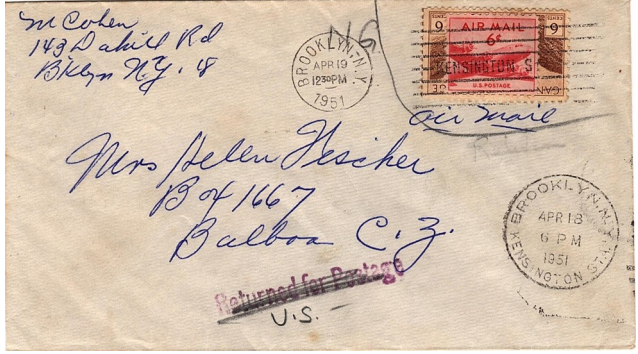 M Cohen
143 Dahill Rd
Bklyn N.Y. 8
BROOKLYN, N.Y.
APR 19
12 30 PM
1951
6 CENTS
AIR MAIL
6¢
KENSINGTON S
U.S. POSTAGE
CENTS 6
air mail
Mrs Helen Fischer
Box 1667
Balboa C. Z.
BROOKLYN, N.Y.
APR 18
6 PM
1951
KENSINGTON STA.
Returned for Postage
U.S.